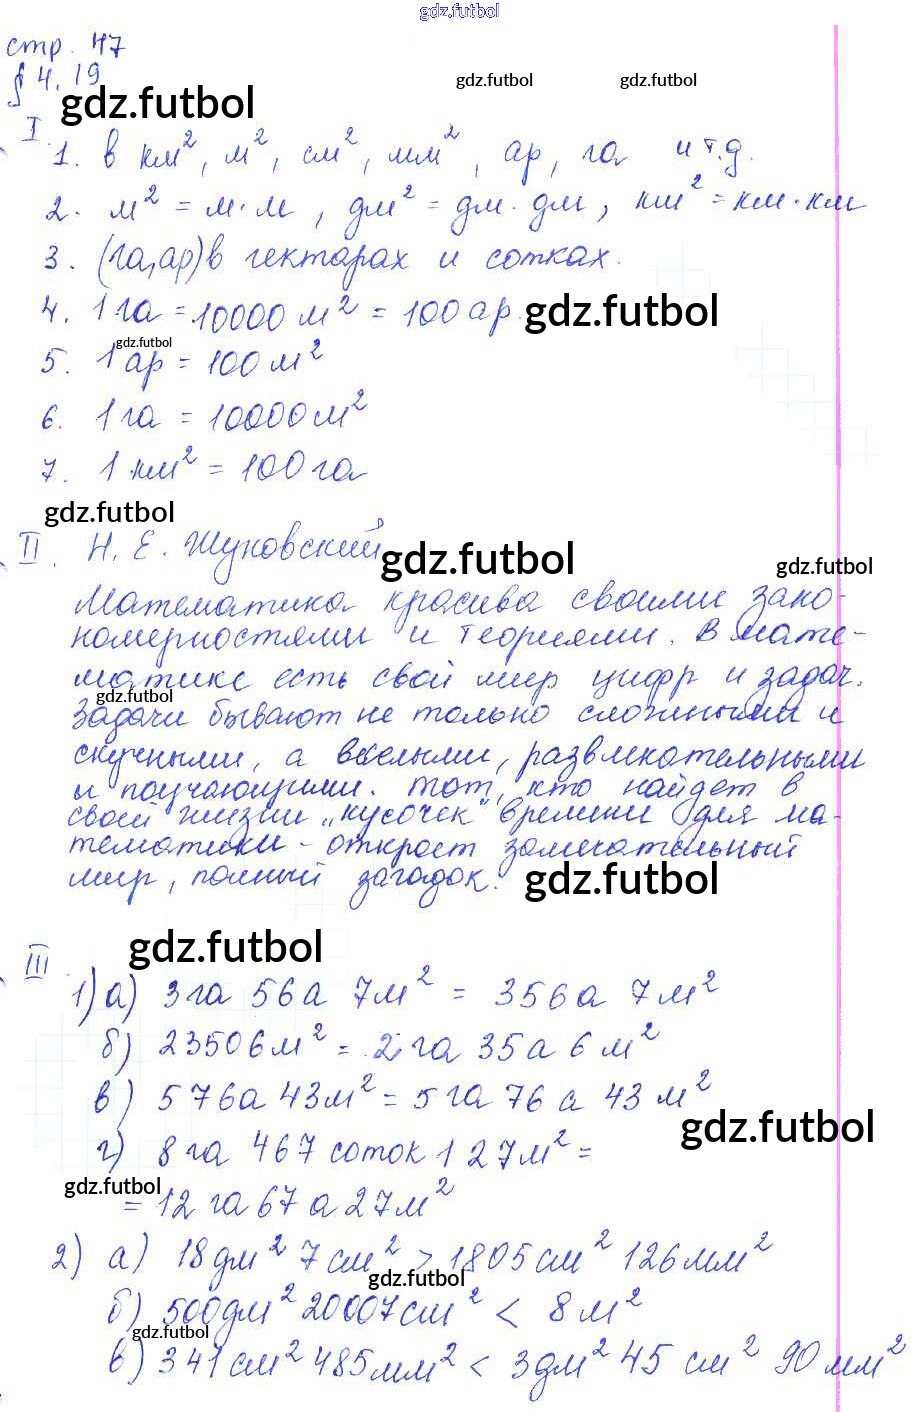 gdz.futbol
стр. 47
§ 4.19
gdz.futbol
gdz.futbol gdz.futbol
I
1. в км², м², см², мм², ар, га и т.д.
2. м² = м·м, дм² = дм·дм, км² = км·км
3. (га, ар) в гектарах и сотках.
4. 1 га = 10000 м² = 100 ар.
gdz.futbol
gdz.futbol
5. 1 ар = 100 м²
6. 1 га = 10000 м²
7. 1 км² = 100 га
gdz.futbol
II. Н. Е. Жуковский
gdz.futbol
gdz.futbol
Математика красива своими зако-
номерностями и теориями. В мате-
матике есть свой мир цифр и задач.
gdz.futbol
Задачи бывают не только сложными и
скучными, а веселыми, развлекательными
и поучающими. Тот, кто найдет в
своей жизни „кусочек" времени для ма-
тематики - откроет замечательный
мир, полный загадок.
gdz.futbol
gdz.futbol
III.
1) а) 3 га 56 а 7 м² = 356 а 7 м²
б) 23506 м² = 2 га 35 а 6 м²
в) 576 а 43 м² = 5 га 76 а 43 м²
gdz.futbol
г) 8 га 467 соток 127 м² =
gdz.futbol
= 12 га 67 а 27 м²
2) а) 18 дм² 7 см² > 1805 см² 126 мм²
gdz.futbol
б) 500 дм² 20007 см² < 8 м²
gdz.futbol
в) 341 см² 485 мм² < 3 дм² 45 см² 90 мм²